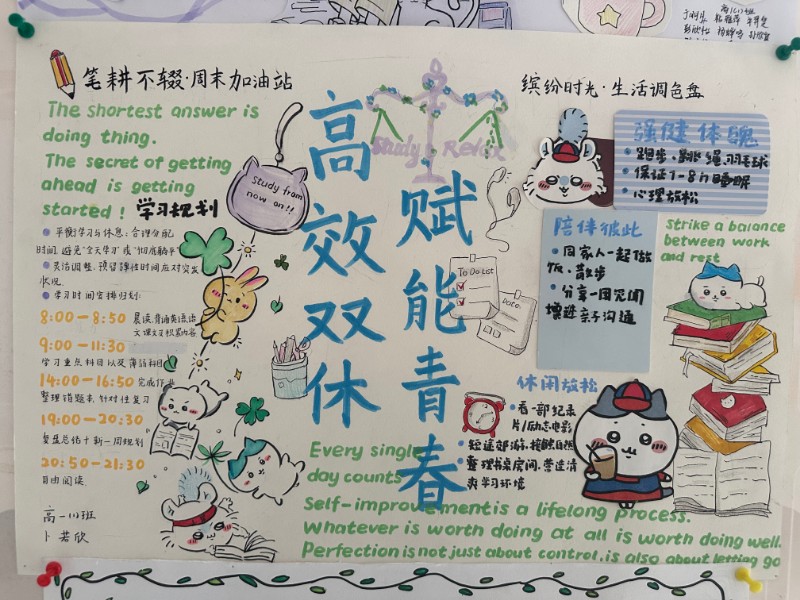 笔耕不辍·周末加油站
The shortest answer is
doing thing.
The secret of getting
ahead is getting
started!
学习规划
平衡学习与休息:合理分配
时间,避免"全天学习"或"彻底躺平"
灵活调整,预留弹性时间应对突发
状况
学习时间安排归划:
8:00-8:50 晨读,背诵英语语
文课文及积累内容
9:00-11:30
学习重点科目以及薄弱科目
14:00-16:50 完成作业
整理错题本,针对性复习
19:00-20:30
复盘总结+新一周规划
20:50-21:30
自由阅读
高一
卜若欣
Study from
now on!!
高效双休
赋能青春
Study Relax
To Do List
Date:
缤纷时光·生活调色盘
强健体魄
跑步、跳绳、羽毛球
保证7-8h睡眠
心理放松
陪伴彼此
同家人一起做
饭、散步
分享一周见闻
增进亲子沟通
Strike a balance
between work
and rest
休闲放松
看一部纪录
片/励志电影
短途郊游,接触自然
整理书桌房间,营造清
爽学习环境
Every single
day counts
Self-improvement is a lifelong process.
Whatever is worth doing at all is worth doing well.
Perfection is not just about control, is also about letting go